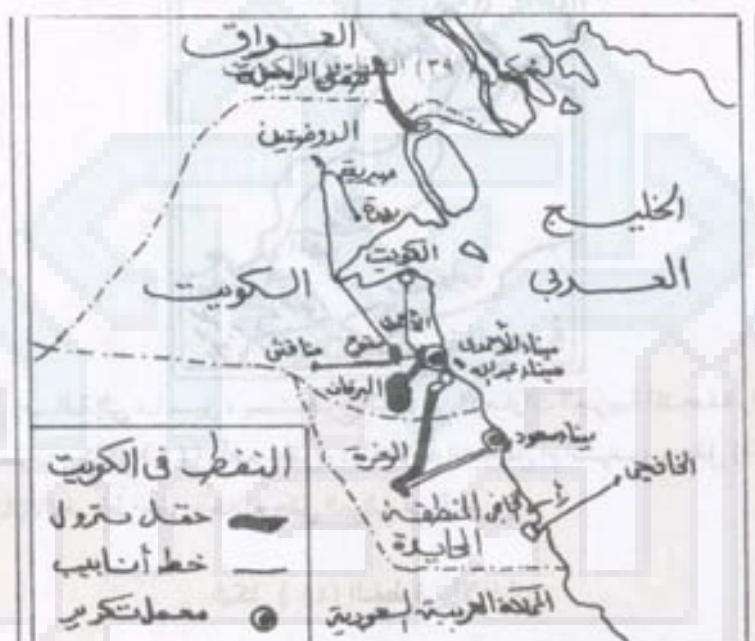 العراق
شكل (٣٩)
الروضتين
صبرية
بحرة
الخليج
العربي
الكويت
الكويت
الأحمدى
مقوع
مناقش
ميناء الأحمدى
ميناء عبدالله
البرقان
الوفرة
ميناء سعود
الخافجى
رأس الخافجى
المنطقة
المحايدة
المملكة العربية السعودية
النفط فى الكويت
حقل بترول
خط أنابيب
معمل تكرير